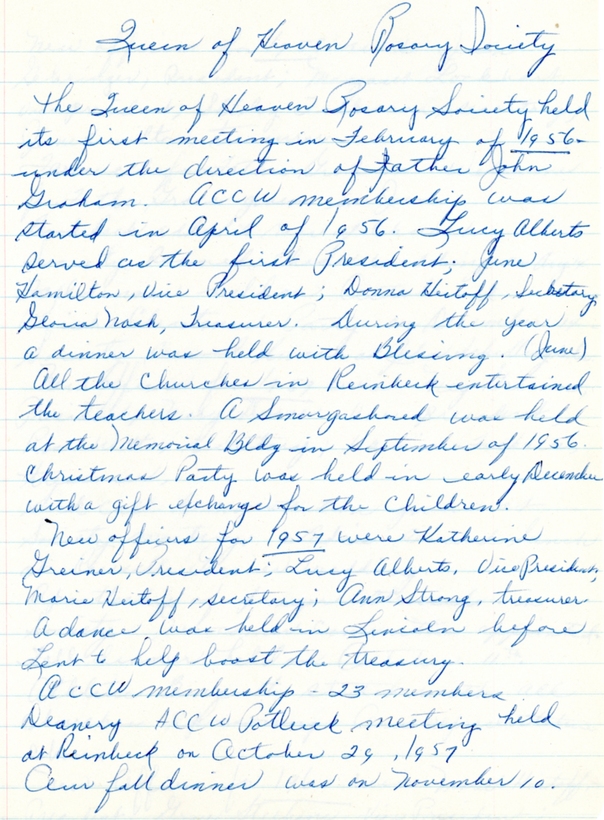 Queen of Heaven Rosary Society
The Queen of Heaven Rosary Society held
its first meeting in February of 1956-
under the direction of Father John
Graham. ACCW membership was
started in April of 1956. Lucy Alberts
served as the first President; June
Hamilton, Vice President; Donna Heitoff, Secretary
Gloria Nash, Treasurer. During the year
a dinner was held with Blessing. (June)
All the Churches in Reinbeck entertained
the teachers. A Smorgasbored was held
at the Memorial Bldg in September of 1956.
Christmas Party was held in early December
with a gift exchange for the Children.
New officers for 1957 were Katherine
Greiner, President; Lucy Alberts, Vice President,
Marie Heitoff, secretary; Ann Strong, treasurer.
A dance was held in Lincoln before
Lent to help boost the treasury.
ACCW membership - 23 members
Deanery ACCW Potluck meeting held
at Reinbeck on October 29, 1957
Our fall dinner was on November 10.